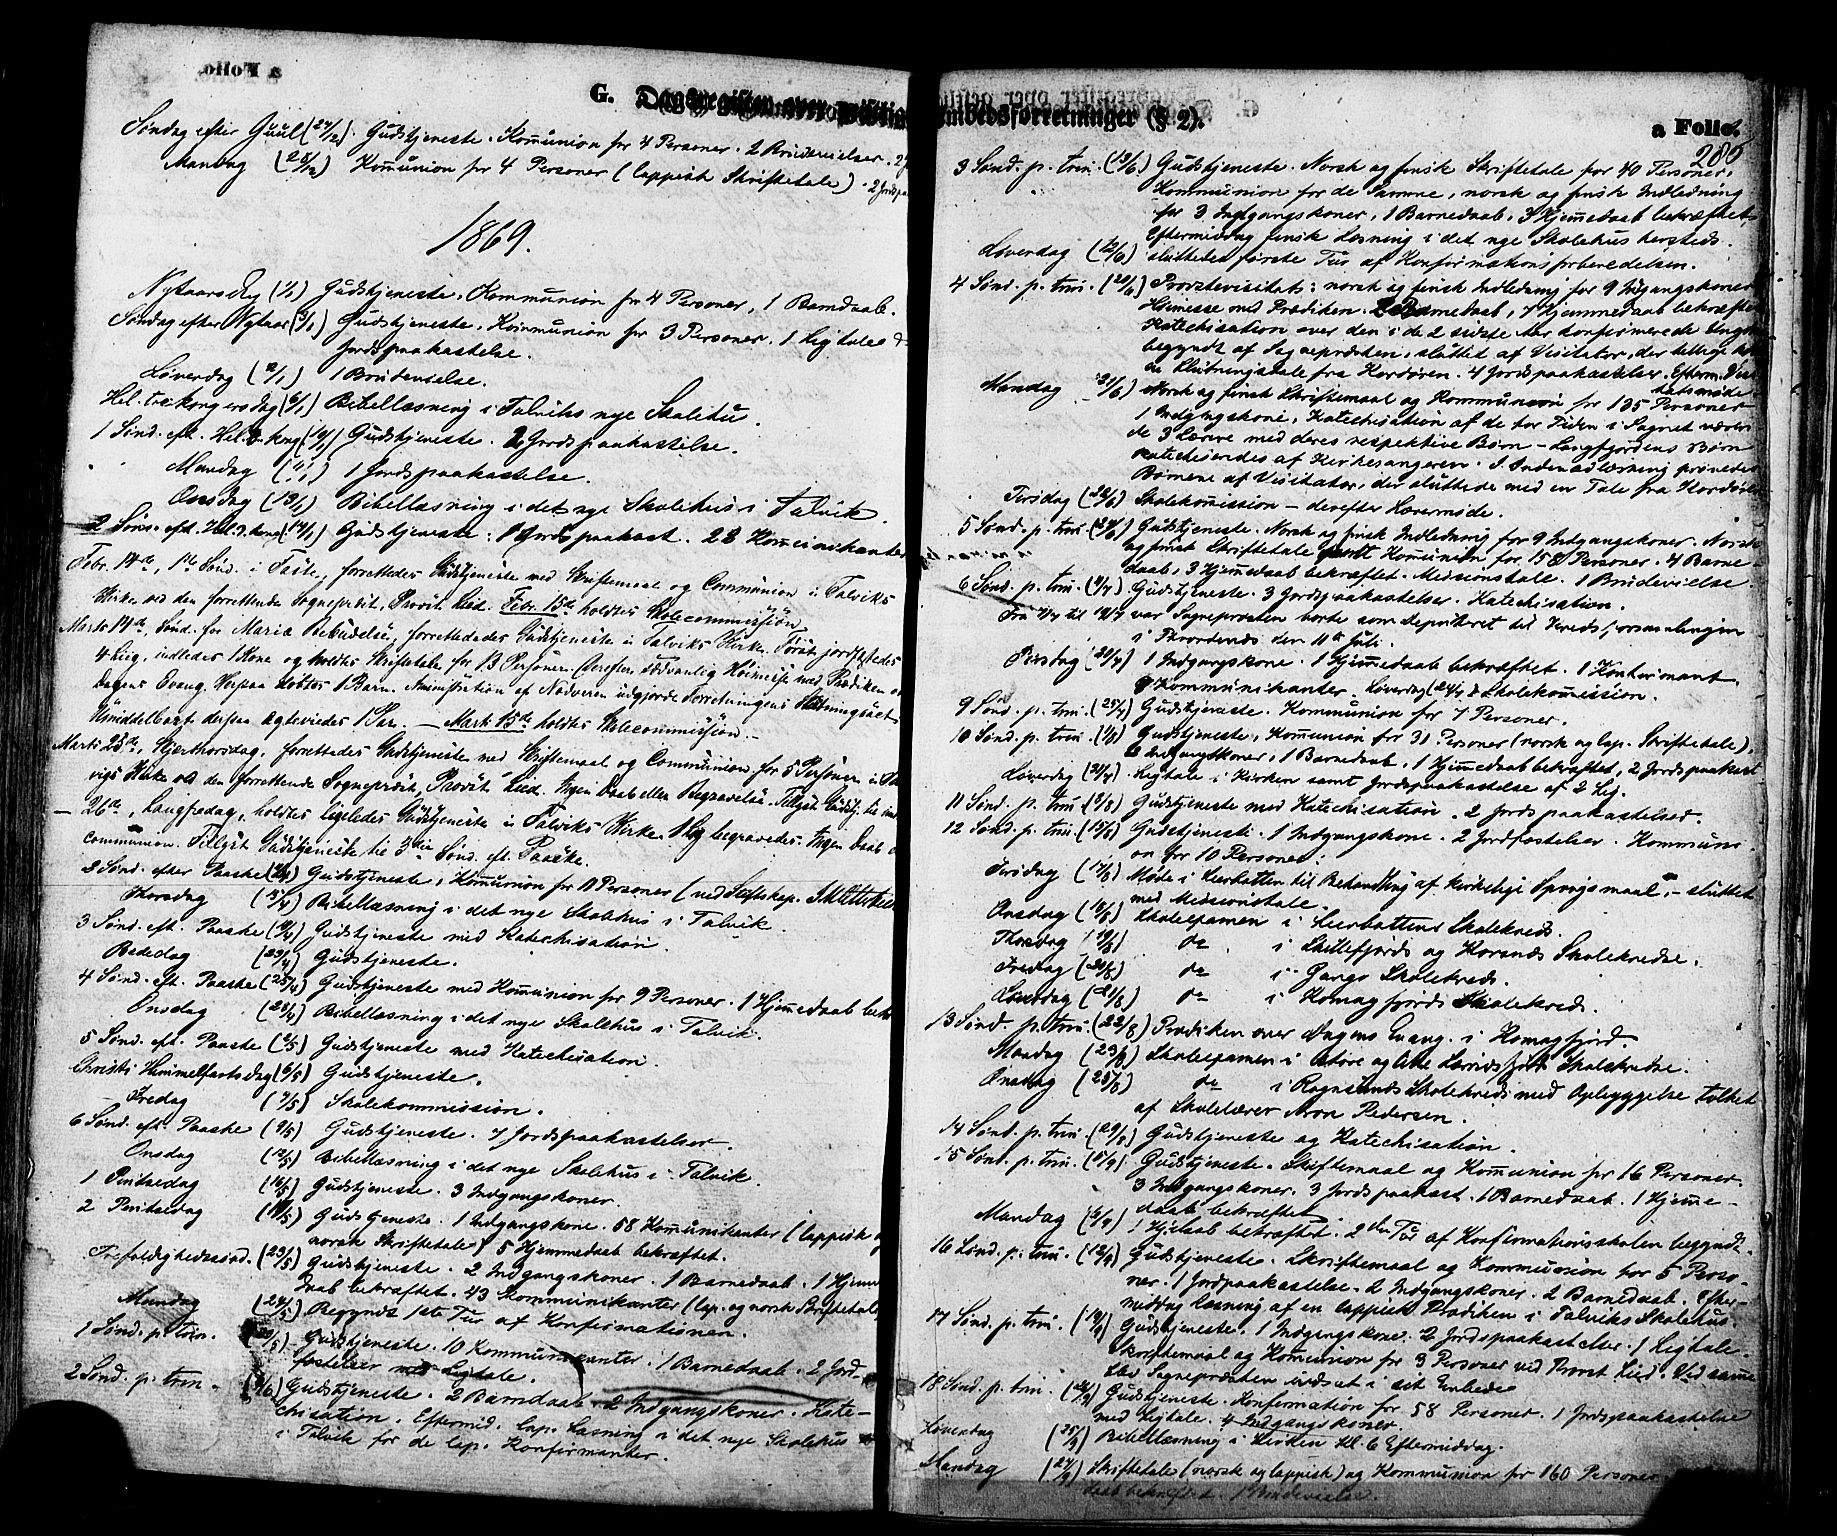 G. Dagsregister over geistlige Embedsforretninger (§ 2).
Søndag efter Juul (27/12) Gudstjeneste. Kommunion for 4 Personer. 2 Brudevielser.
Mandag (28/12) Kommunion for 4 Personer (lappisk Skriftetale).
1869.
Nytaarsdag (1/1) Gudstjeneste. Kommunion for 4 Personer, 1 Barnedaab.
Søndag efter Nytaar (3/1) Gudstjeneste. Kommunion for 3 Personer, 1 Ligtale
Jordspaakastelse.
Løverdag 1 Brudevielse.
Hel. trekongersdag (6/1) Bibellæsning i Talviks nye Skolehu.
1 Sønd. eft. Hel. 3 kong (10/1) Gudstjeneste. 2 Jordspaakastelse.
Mandag (11/1) 1 Jordspaakastelse.
Onsdag (13/1) Bibellæsning i det nye Skolehus i Talvik.
2 Sønd. eft. Hel. 3 kong (17/1) Gudstjeneste. 1 Jordspaakast. 28 Kommunikanter
Febr. 14de, 1ste Sønd. i Faste, forrettedes Gudstjeneste med Skriftemaal og Communion i Talviks
Kirke ved den forrettende Sognepræst, Provst Lied. Febr. 15de holdtes Skolecommission.
Marts 14de, Sønd. før Mariæ Bebudelse, forrettedes Gudstjeneste i Talviks Kirke. Først jordfæstedes
4 Liig, indledes 1 Kone og holdtes Skriftetale for 13 Personer. Derefter sædvanlig Høimesse med Prædiken over
Dagens Evang. Herpaa døbtes 1 Barn. Administration af Nadveren udgjorde Forretningens
Umiddelbart derpaa ægteviedes 1 Par. — Marts 15de holdtes Skolecommission. —
Marts 25de, Skjærthorsdag, forrettedes Gudstjeneste med Skriftemaal og Communion for 5 Personer i Tal-
viks Kirke ved den forrettende Sognepræst, Provst Lied. Ingen Daab eller Begravelse. Tillyst Gudstj. til
— 26de, Langfredag, holdtes ligeledes Gudstjeneste i Talviks Kirke. 1 Lig begravedes. Ingen Daab
Communion. Tillyst Gudstjeneste til 3die Sønd. eft. Paaske.
2 Sønd. efter Paaske Gudstjeneste, Kommunion for Personer
Thorsdag (15/4) Bibellæsning i det nye Skolehus i Talvik.
3 Sønd. eft. Paaske Gudstjeneste med Katechisation.
Bededag (23/4) Gudstjeneste.
4 Sønd. eft. Paaske (25/4) Gudstjeneste med Kommunion for 9 Personer. 1 Hjemmedaab
Onsdag (28/4) Bibellæsning i det nye Skolehus i Talvik.
5 Sønd. eft. Paaske (2/5) Gudstjeneste med Katechisation.
Christi Himmelfartsdag (6/5) Gudstjeneste.
Fredag (7/5) Skolekommission.
6 Sønd. eft. Paaske (9/5) Gudstjeneste. 7 Jordspaakastelser.
Onsdag (12/5) Bibellæsning i det nye Skolehus i Talvik.
1 Pintsedag (16/5) Gudstjeneste. 3 Indgangskoner.
2 Pintsedag (17/5) Gudstjeneste. 1 Indgangskone. 58 Kommunikanter (lappisk og
norsk Skriftetale) 5 Hjemmedaab bekræftet.
Trefoldighedssønd. (23/5) Gudstjeneste. 2 Indgangskoner. 1 Barnedaab. 1 Hjemme-
daab bekræftet. 43 Kommunikanter (lap. og norsk Skriftetale)
Mandag (24/5) Begyndt 1ste Tur af Konfirmationen.
1 Sønd. p. trin. (30/5) Gudstjeneste. 10 Kommunikanter. 1 Barnedaab. 2 Jord-
fæstelser med Ligtale.
2 Sønd. p. trin. (6/6) Gudstjeneste. 2 Barnedaab. 2 Indgangskoner. Kate-
chisation. Eftermid. lap. Læsning i det nye Skolehus
i Talvik for de lap. Konfirmanter.
a Folio.
286
3 Sønd. p. trin. (13/6) Gudstjeneste. Norsk og finsk Skriftetale for 40 Personer,
Kommunion for de Samme, norsk og finsk Indledning
for 3 Indgangskoner, 1 Barnedaab, 3 Hjemmedaab bekræftet,
Eftermiddag finsk Læsning i det nye Skolehus hersteds.
Løverdag (12/6) sluttedes første Tur af Konfirmationsforberedelsen.
4 Sønd. p. trin. (20/6) Provstevisitats: norsk og finsk Indledning for 9 Indgangskoner
Høimesse med Prædiken. Barnedaab, 7 Hjemmedaab bekræftet
Katechisation over den i de 2 sidste Aar konfirmerede Ungdom
begyndt af Sognepræsten, sluttet af Visitator, der tillige
Slutningstale fra Kordøren. 4 Jordspaakastelser. Efterm. Visi-
tatsmøde.
Mandag (21/6) Norsk og finsk Skriftemaal og Kommunion for 135 Personer
1 Indgangskone, Katechisation af de for Tiden i Sognet
de 3 Lærere med deres respektive Børn — Langfjordens Børn
katechiseredes af Kirkesangeren. I Indenadlæsning prøvedes
Børnene af Visitator, der sluttede med en Tale fra Kordøren
Tirsdag (22/6) Skolekommission — derefter Lærermøde.
5 Sønd. p. trin. (27/6) Gudstjeneste. Norsk og finsk Indledning for 9 Indgangskoner. Norsk
og finsk Skriftetale samt Kommunion for 158 Personer. 4 Barne-
daab, 3 Hjemmedaab bekræftet. Missionstale. 1 Brudevielse.
6 Sønd. p. trin. (4/7) Gudstjeneste. 3 Jordspaakastelser. Katechisation.
Fra til 19/7 var Sognepræsten borte som deputeret til Kredsforsamlingen
i den 11te Juli.
Tirsdag (20/7) 1 Indgangskone. 1 Hjemmedaab bekræftet. 1 Konfirmant.
Kommunikanter. Løverdag (24/7) Skolekommission.
9 Sønd. p. trin. (25/7) Gudstjeneste. Kommunion for 7 Personer.
10 Sønd. p. trin. (1/8) Gudstjeneste, Kommunion for 31 Personer (norsk og lap. Skriftetale),
6 Indgangskoner, 1 Barnedaab, 1 Hjemmedaab bekræftet, 2 Jordspaakast
Løverdag (31/7) Ligtale i Kirken samt Jordspaakastelse af 2 Lig.
11 Sønd. p. trin. (8/8) Gudstjeneste med Katechisation. 2 Jordspaakastelser.
12 Sønd. p. trin. (15/8) Gudstjeneste. 1 Indgangskone. 2 Jordfæstelser. Kommuni-
on for 10 Personer.
Tirsdag (17/8) Møde i Leerbotten til Behandling af kirkelige Spørgsmaal — sluttet
med Missionstale.
Onsdag (18/8) Skoleexamen i Leerbottens Skolekreds.
Thorsdag (19/8) do i Skillefjords og Korsnæs Skolekredse.
Fredag (20/8) do i Skolekreds.
Løverdag (21/8) do i Komagfjords Skolekreds.
13 Sønd. p. trin. (22/8) Prædiken over Dagens Evang. i Komagfjord.
Mandag (23/8) Skoleexamen i Store og Lille Lerresfjord Skolekredse.
Onsdag (25/8) do i Rognsunds Skolekreds med Opbyggelse tolket
af Skolelærer Aron Pedersen.
14 Sønd. p. trin. (29/8) Gudstjeneste og Katechisation.
15 Sønd. p. trin. (5/9) Gudstjeneste. Skriftemaal og Kommunion for 16 Personer.
3 Indgangskoner. 3 Jordspaakast. 1 Barnedaab. 1 Hjemme-
daab bekræftet.
Mandag (6/9) 1 Hj.daab bekræftet. 2den Tur af Konfirmationsskolen begyndt.
16 Sønd. p. trin. (12/9) Gudstjeneste. Skriftemaal og Kommunion for 5 Perso-
ner. 1 Jordspaakastelse. 2 Indgangskoner. 2 Barnedaab. Efter-
middag læsning af en lappisk Prædiken i Talviks Skolehus.
17 Sønd. p. trin. (19/9) Gudstjeneste. 1 Indgangskone. 2 Jordspaakastelser. 1 Ligtale.
Skriftemaal og Kommunion for 9 Personer ved Provst Lied. Ved samme
blev Sognepræsten indsat i sit Embede
18 Sønd. p. trin. (26/9) Gudstjeneste. Konfirmation for 58 Personer. 1 Jordspaakastelse
med Ligtale. 4 Indgangskoner
Løverdag (25/9) Bibellæsning i Kirken Kl. 6 Eftermiddag.
Mandag (27/9) Skriftetale (norsk og lappisk) og Kommunion for 160 Personer
daab bekræftet. 1 Brudevielse.